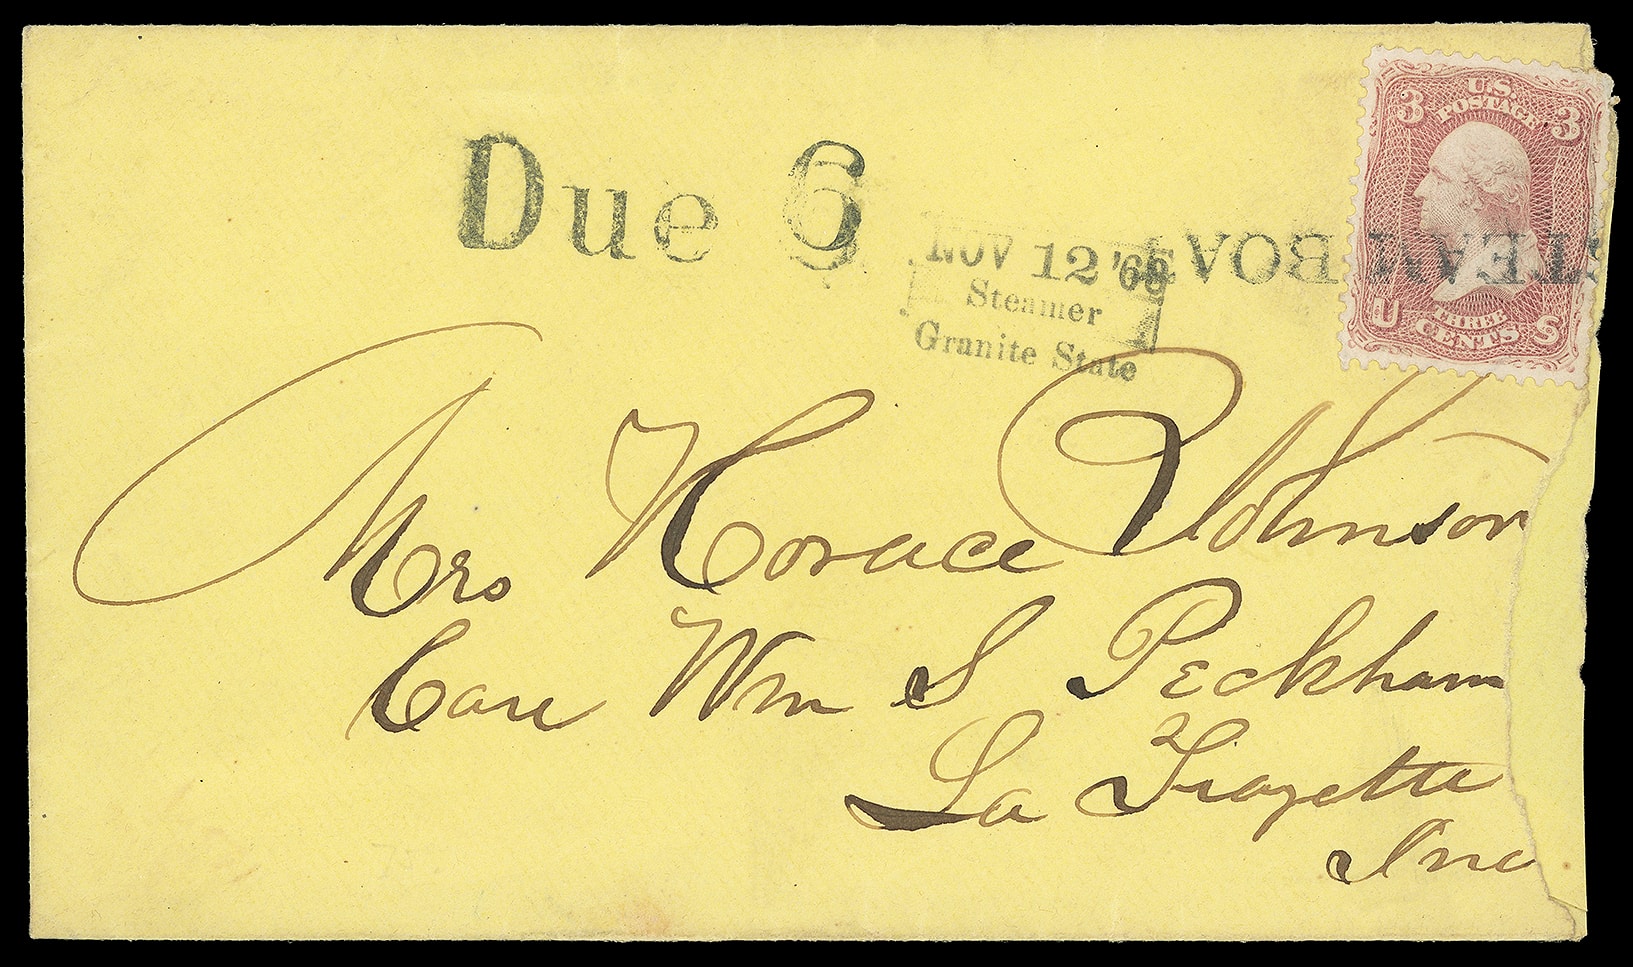 3 U.S. 3
POSTAGE
U THREE S
CENTS
Due 6
STEAM BOAT
NOV 12 '69
Steamer
Granite State
Mrs Horace Johnson
Care Wm S Peckham
La Fayette
Ind